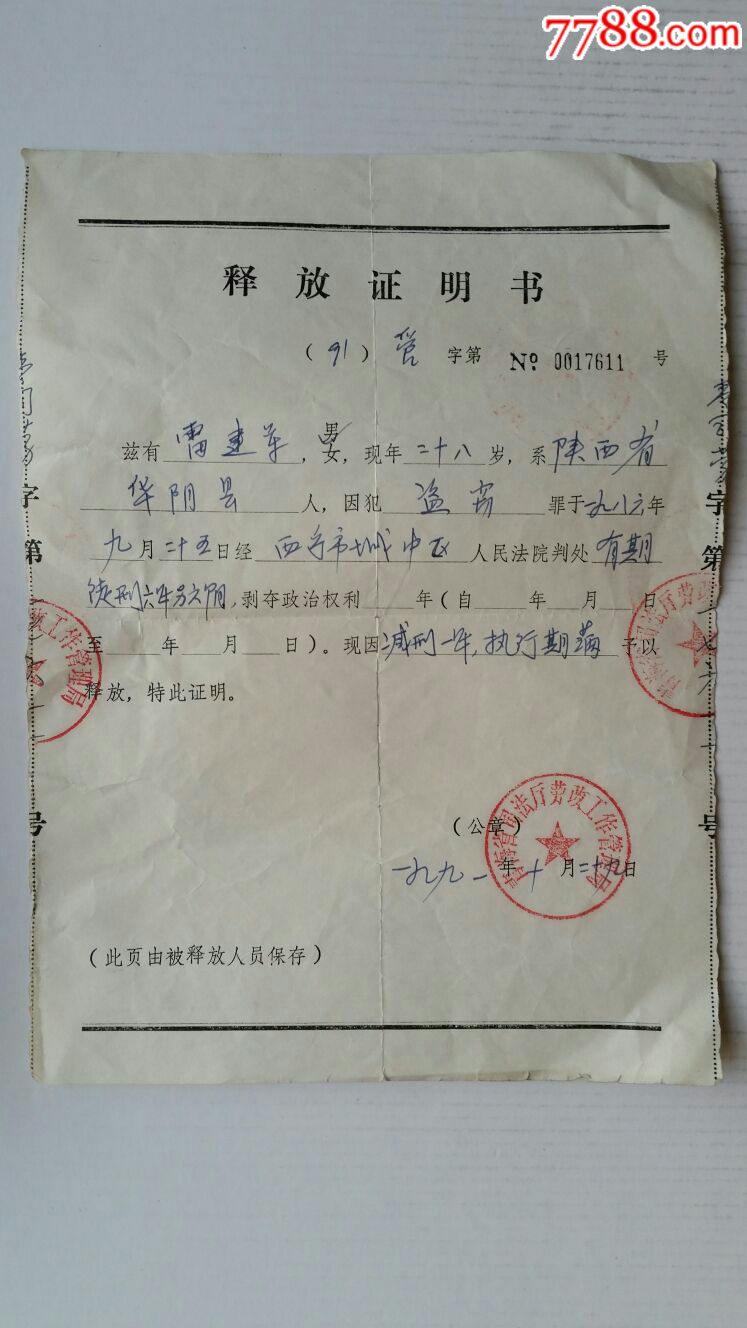 7788.com
释放证明书
(91)管字第 № 0017611 号
兹有雷建军,男女,现年二十八岁,系陕西省
华阴县人,因犯盗窃罪于一九八六年
九月二十五日经西宁市城中区人民法院判处有期
徒刑六年另六个月,剥夺政治权利 年(自 年 月 日
至 年 月 日)。现因减刑一年,执行期满予以
释放,特此证明。
(公章)
青海省司法厅劳改工作管理局
一九九一年十月二十九日
(此页由被释放人员保存)
字第
号
改工作管理局
字第
号
青海省司法厅劳改